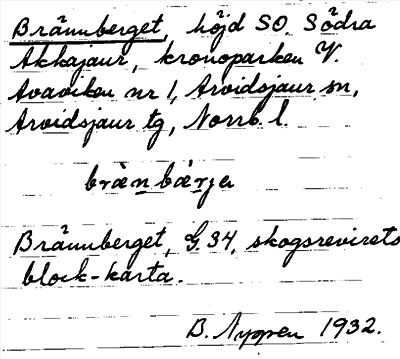 Brännberget, höjd SO. Södra
Akkajaur, kronoparken V.
Avaviken nr 1, Arvidsjaur sn,
Arvidsjaur tg, Norrb. l.
brènbærjə
Brännberget, G 34, skogsrevirets
block-karta.
B. Nyppen 1932.